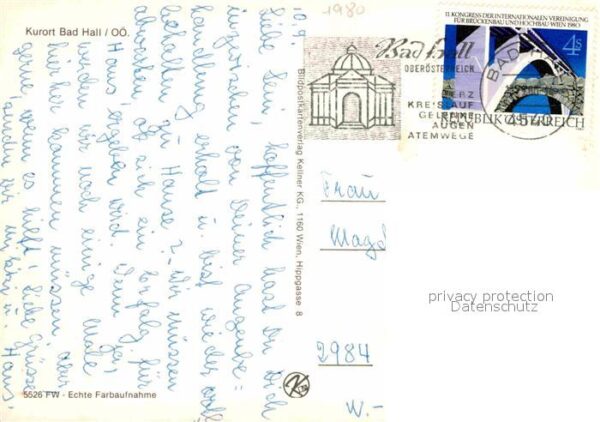 Kurort Bad Hall / OÖ.
1980
10.9.
Liebe
hoffentlich hast Du Dich
inzwischen von Deiner Augenbe=
handlung erholt u. bist wieder wohl=
behalten zu Hause? Wir müssen
abwarten ob sich ein Erfolg für
Hans ergeben wird. Wenn ja,
werden wir noch einige Male
hierher kommen müssen, aber
gerne wenn es hilft! Liebe Grüsse
senden wir
Hans.
Bildpostkartenverlag Kellner KG., 1160 Wien, Hippgasse 8
Bad Hall
OBERÖSTERREICH
HERZ
KREISLAUF
GELENKE
AUGEN
ATEMWEGE
11. KONGRESS DER INTERNATIONALEN VEREINIGUNG
FÜR BRÜCKENBAU UND HOCHBAU WIEN 1980
4s
BAD HALL
4540
REPUBLIK ÖSTERREICH
Frau
Magd
2984
W.-
privacy protection
Datenschutz
5526 FW - Echte Farbaufnahme